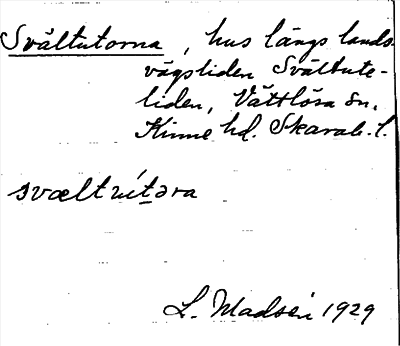 Svältutorna, hus längs lands-
vägsliden Svältute-
liden, Vättlösa sn,
Kinne hd. Skarab. l.
L. Madsén 1929